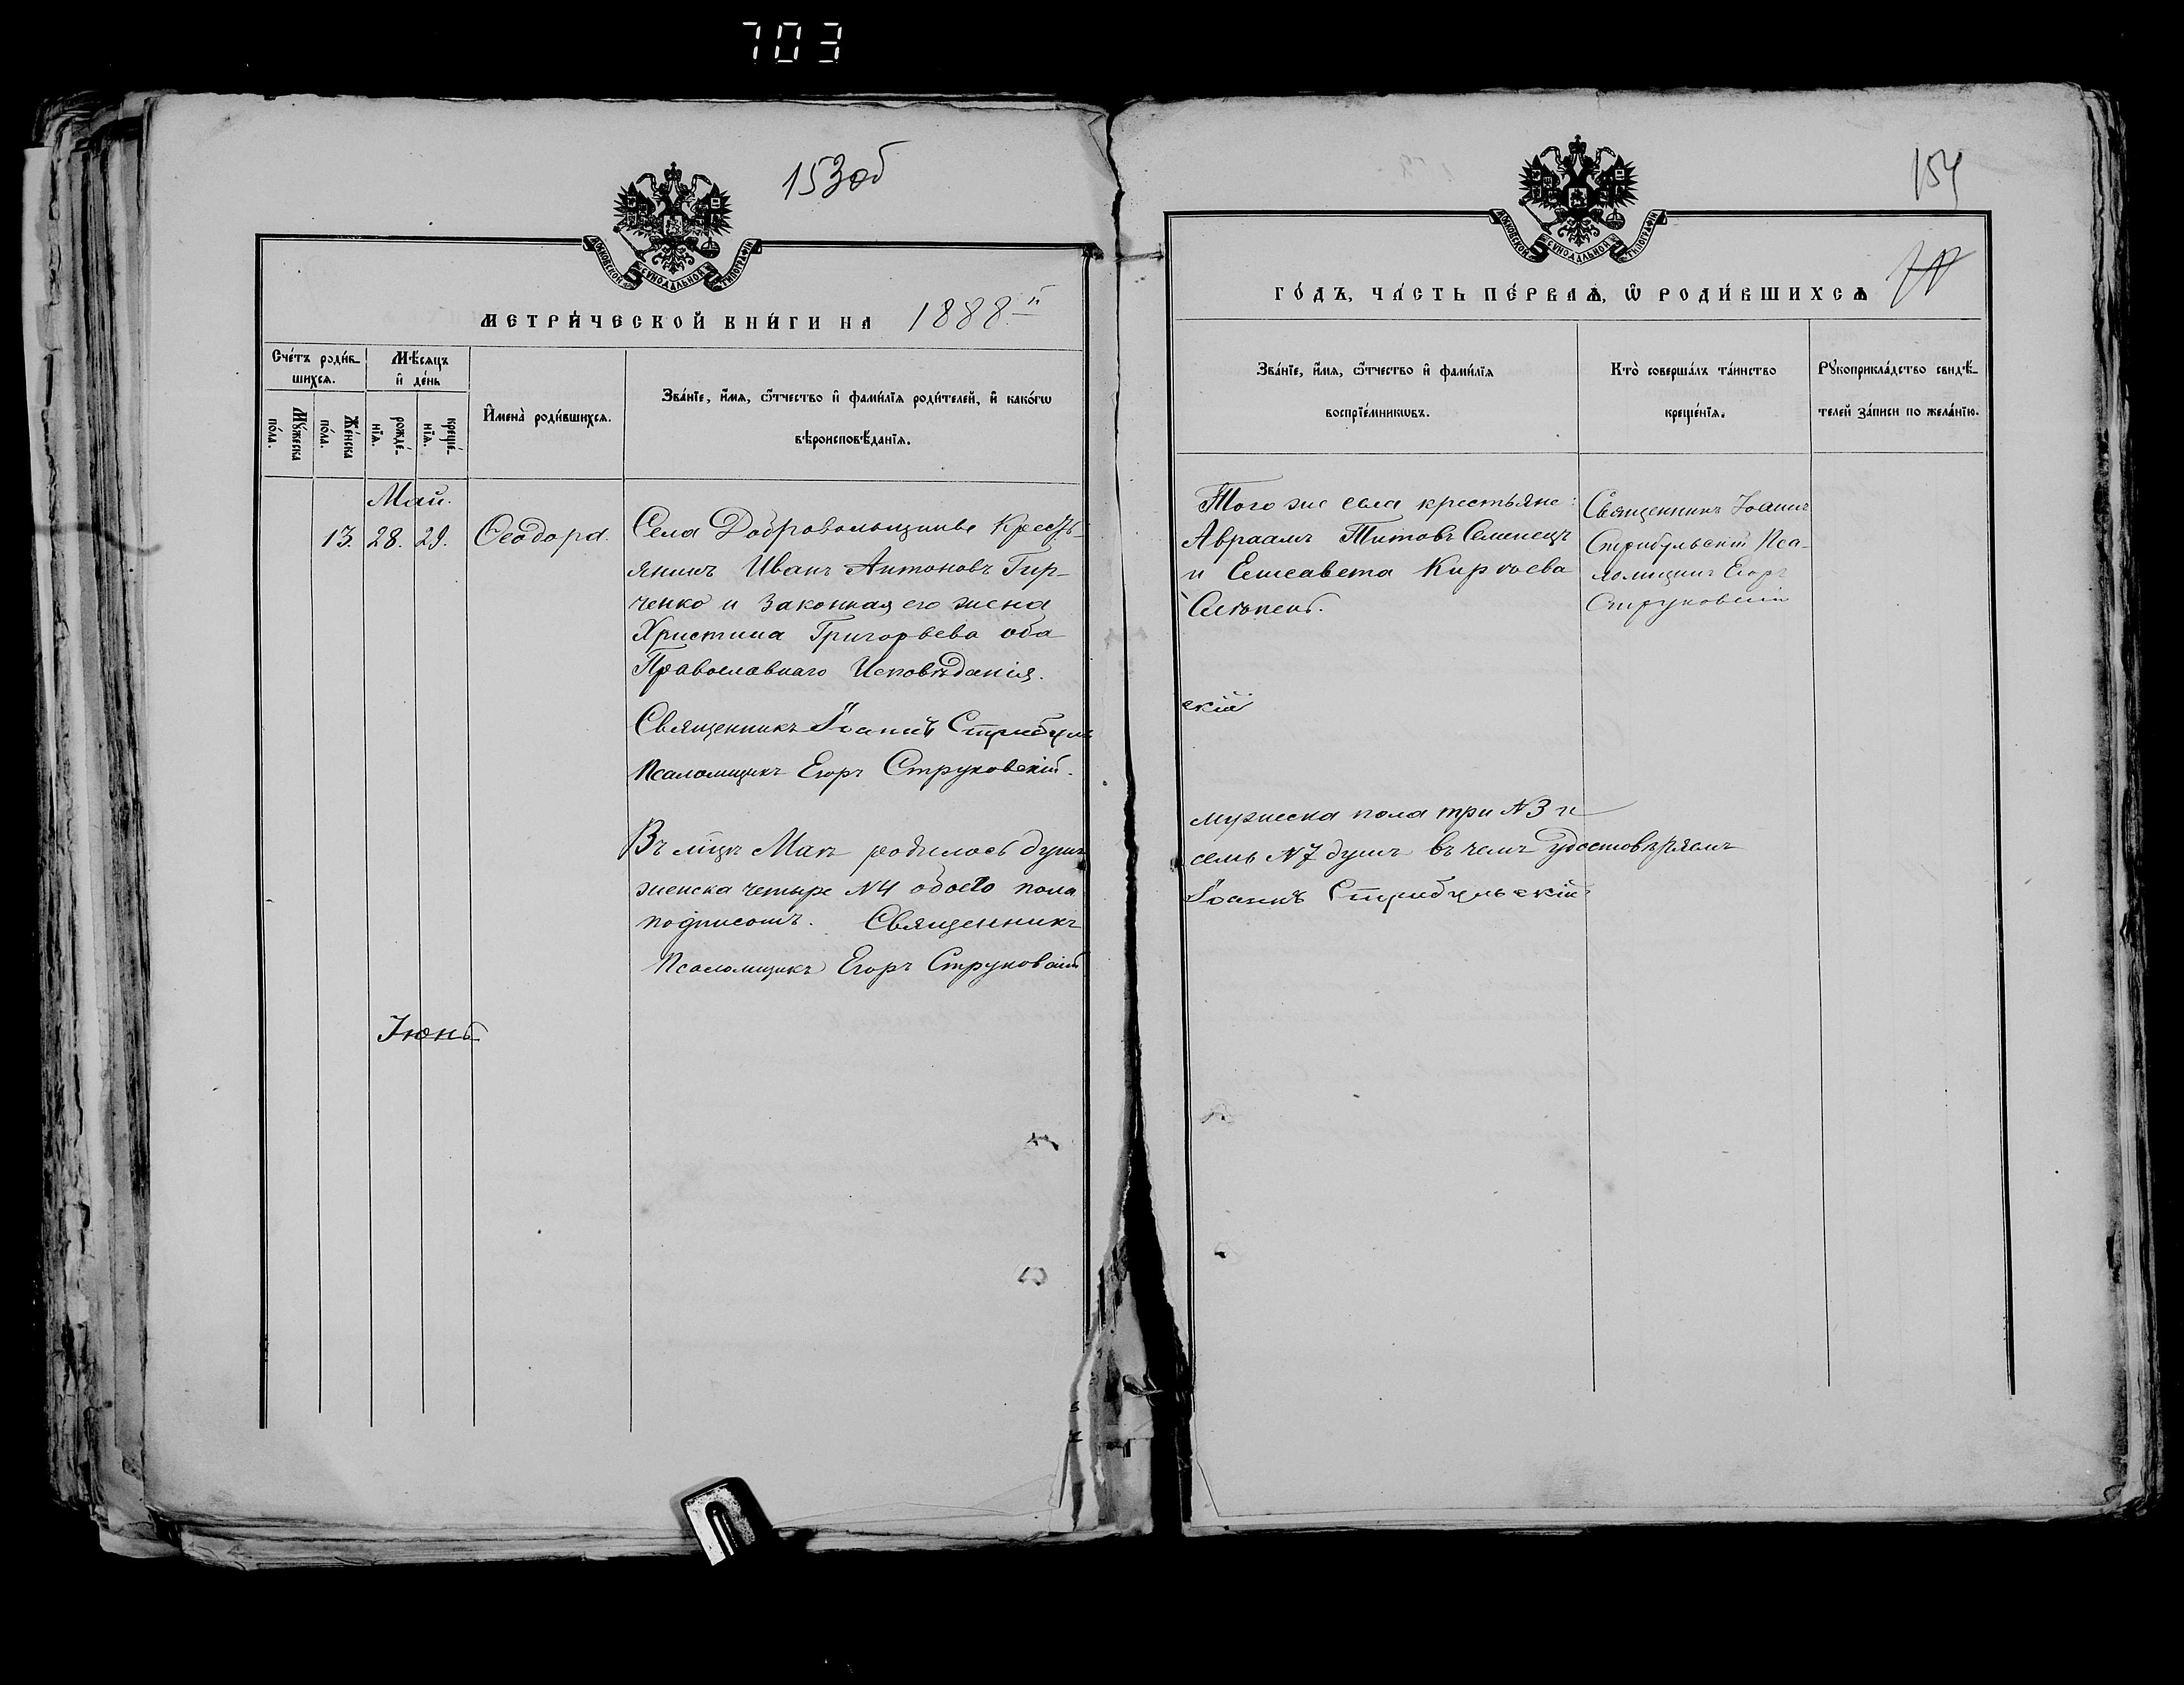 703
153об
МОСКОВСКОЙ СУНОДАЛЬНОЙ ТИПОГРАФІИ
МЕТРИ́ЧЕСКОЙ КНИ́ГИ НА 1888.й
Сче́тъ роди́в-
шихсѧ.
Мѣ́сѧцъ
и҆ де́нь
Мꙋ́жеска
по́ла.
Же́нска
по́ла.
рожде́-
нїѧ.
креще́-
нїѧ.
И҆мена̀ роди́вшихсѧ.
Зва́нїе, и҆́мѧ, ѻ҆́тчество и҆ фами́лїѧ роди́телей, и҆ како́гѡ
вѣроисповѣ́данїѧ.
Май.
13. 28. 29. Ѳеодора. Села Добровольщины Кресть-
янинъ Иванъ Антоновъ Гир-
ченко и законная его жена
Христина Григорьева оба
Православнаго Исповѣданія.
Священникъ Іоаннъ Стрибуль
Псаломщикъ Егоръ Струковскій.
Въ мцѣ Маѣ родилось душъ
женска четыре №4 обоего пола
подписомъ. Священникъ
Псаломщикъ Егоръ Струковскій
Іюнь
154
МОСКОВСКОЙ СУНОДАЛЬНОЙ ТИПОГРАФІИ
ГО́ДЪ, ЧА́СТЬ ПЕ́РВАѦ, Ѡ҆ РОДИ́ВШИХСѦ
Зва́нїе, и҆́мѧ, ѻ҆́тчество и҆ фами́лїѧ
воспрїе́мникѡвъ.
Кто̀ соверша́лъ та́инство
креще́нїѧ.
Рꙋкоприкла́дство свидѣ́-
телей за́писи по жела́нїю.
Того же села крестьяне:
Авраамъ Титовъ Семенецъ
и Елисавета
Священникъ Іоаннъ
Стрибульскій Пса-
ломщикъ Егоръ
Струковскій
скій
мужеска пола три №3 и
семь №7 душъ въ чемъ удостовѣряемъ
Іоаннъ Стрибульскій